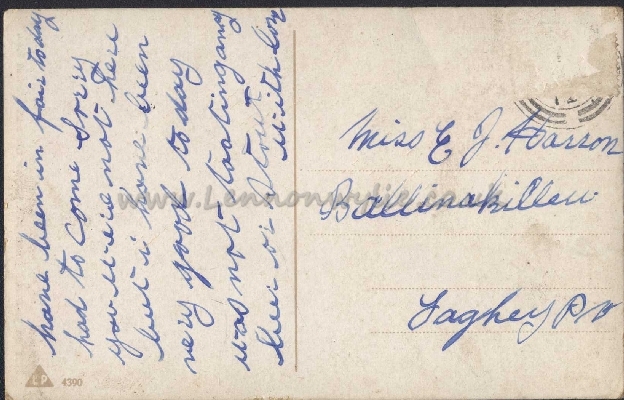 have been in fair today
had to come Sorry
you were not here
but i have been
very good to day
was not tasting any
beer or Stout
with love
Miss E J. Harron
Ballinakillew
Laghey P.O
www.Lennonwylie.co.uk
LP 4390